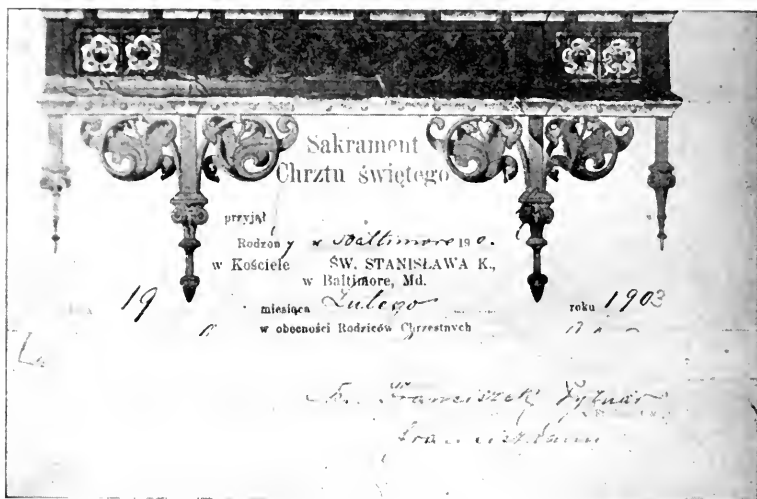 Sakrament
Chrztu świętego
przyjął
Rodzony w Baltimore 19
w Kościele ŚW. STANISŁAWA K.,
w Baltimore, Md.
19 miesiąca Lutego roku 1903
w obecności Rodziców Chrzestnych
Franciszek